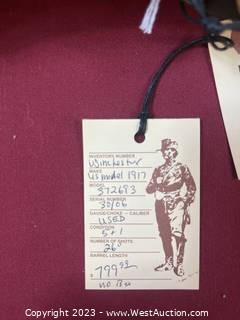 INVENTORY NUMBER
Winchester
MAKE
US model 1917
MODEL
372693
SERIAL NUMBER
30/06
GAUGE/CHOKE – CALIBER
USED
CONDITION
5+1
NUMBER OF SHOTS
26"
BARREL LENGTH
$ 799.95
NO
Copyright © 2023 - www.WestAuction.com